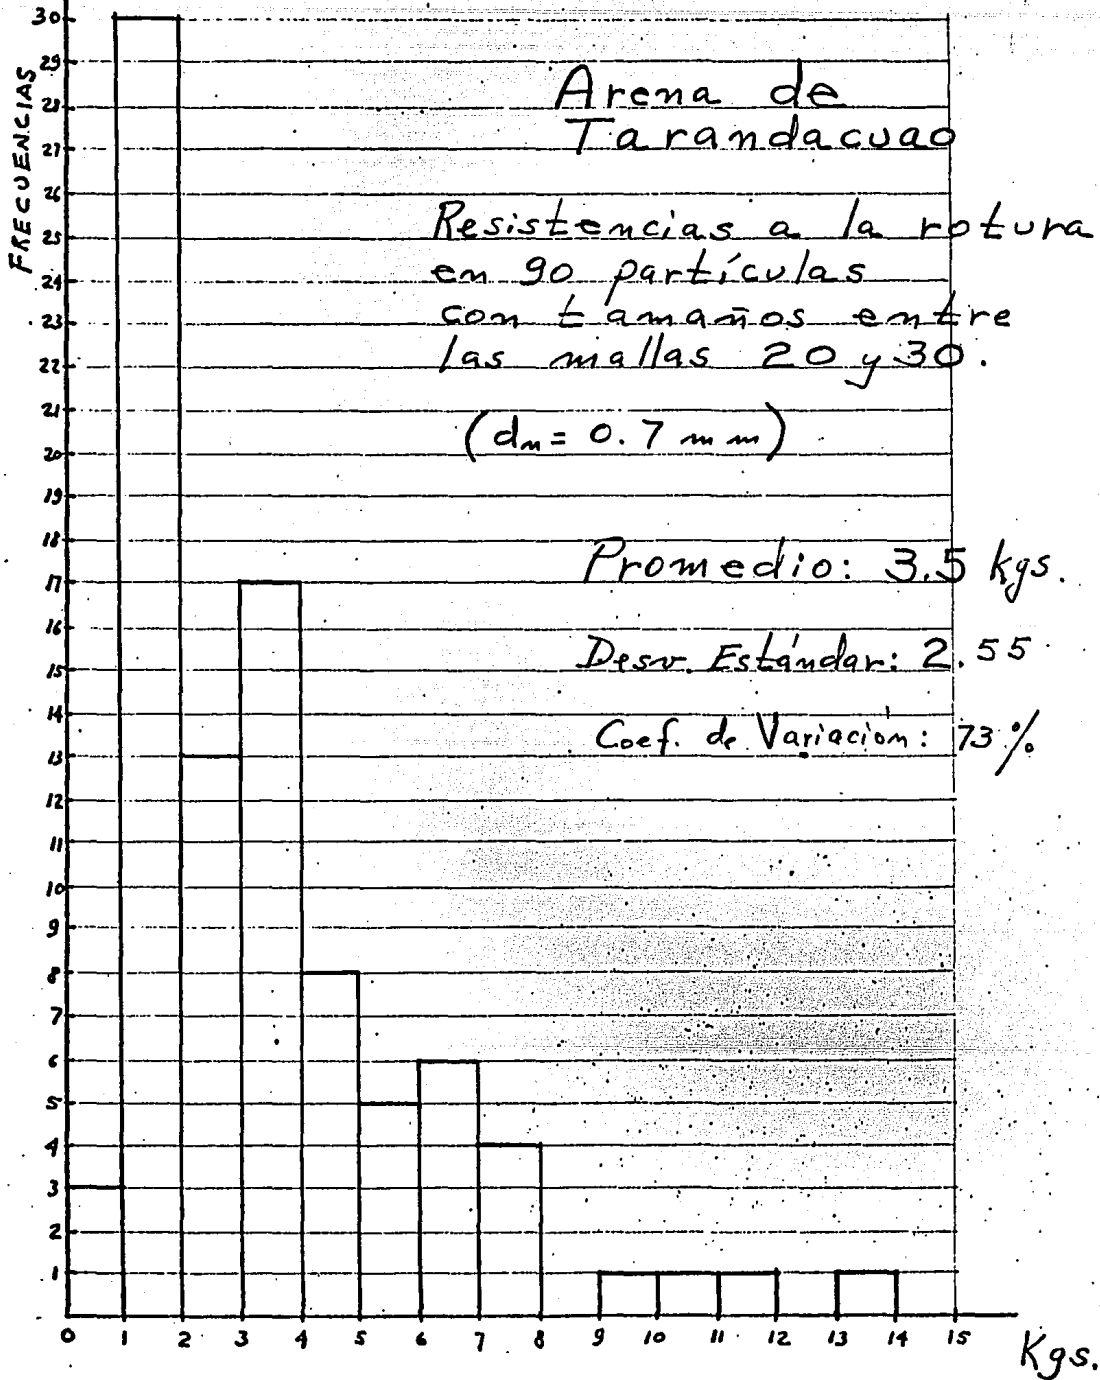 FRECUENCIAS
30
29
28
27
26
25
24
23
22
21
20
19
18
17
16
15
14
13
12
11
10
9
8
7
6
5
4
3
2
1
Arena de
Tarandacuao
Resistencias a la rotura
en 90 partículas
con tamaños entre
las mallas 20 y 30.
(dm = 0.7 mm)
Promedio: 3.5 kgs.
Desv. Estándar: 2.55
Coef. de Variación: 73 %
0 1 2 3 4 5 6 7 8 9 10 11 12 13 14 15
Kgs.